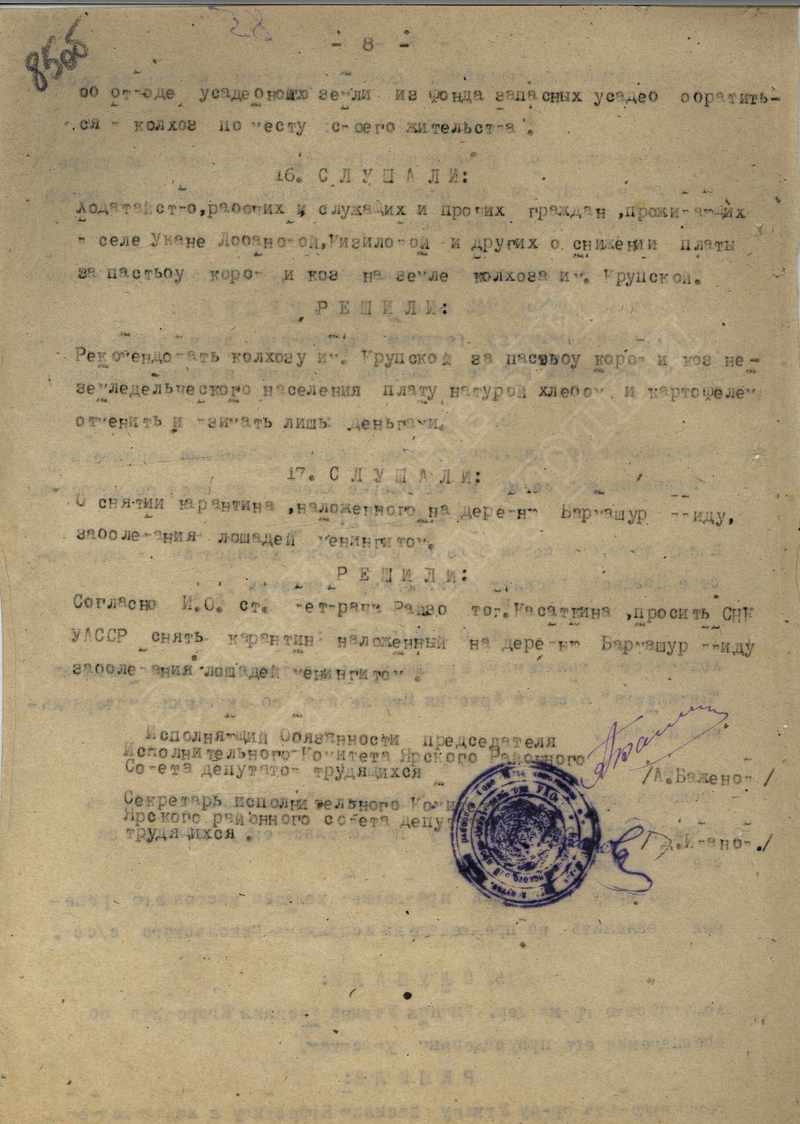 - 8 -
об отводе усадебной земли из фонда запасных усадеб обратить-
ся в колхоз по месту своего жительства.
16. С Л У Ш А Л И:
Ходатайство, рабочих и служащих и прочих граждан, проживающих
в селе Укане Лобановой, Кизиловой и других о снижении платы
за пастьбу коров и коз на земле колхоза им. Крупской.
Р Е Ш И Л И:
Рекомендовать колхозу им. Крупской за пастьбу коров и коз не-
земледельческого населения плату натурой хлебом и картофелем
отменить и взимать лишь деньгами.
17. С Л У Ш А Л И:
О снятии карантина, наложенного на деревню Бармашур ввиду,
заболевания лошадей менингитом.
Р Е Ш И Л И:
Согласно И.О. ст. ветврача Райзо тов. Касаткина, просить СНК
УАССР снять карантин наложенный на деревню Бармашур ввиду
заболевания лошадей менингитом.
Исполняющий Обязанности председателя
Исполнительного Комитета Ярского Районного
Совета депутатов трудящихся /А. Баженов/
Секретарь исполнительного
Ярского районного совета
трудящихся. Иванов./